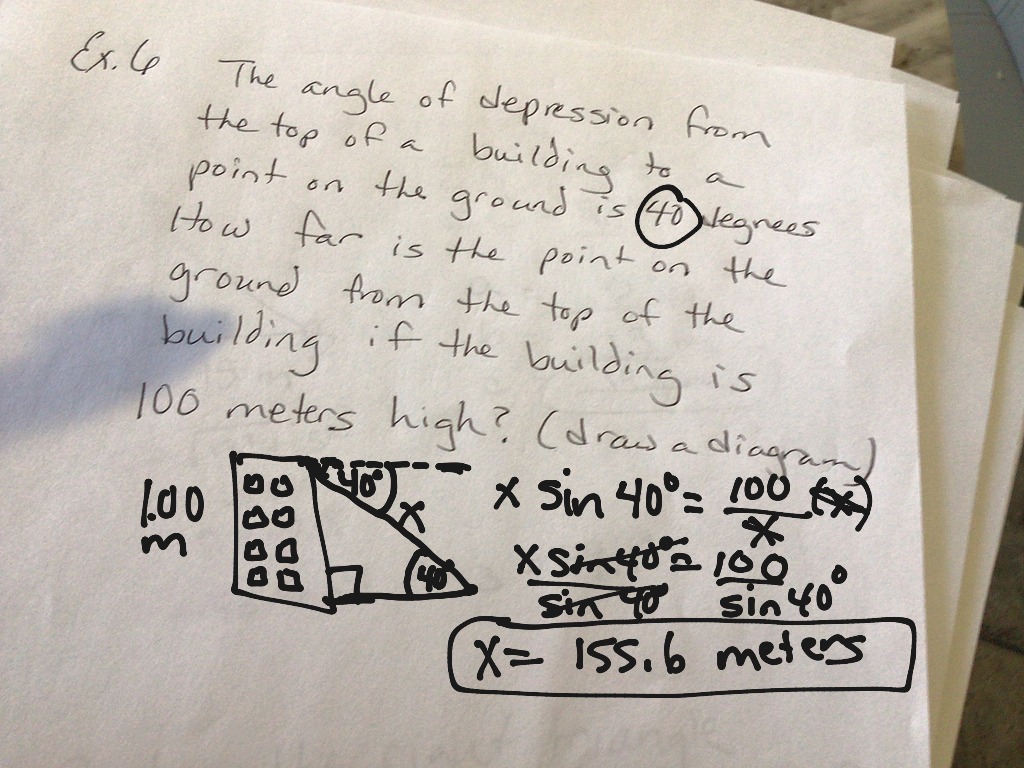 Ex. 6 The angle of depression from
the top of a building to a
point on the ground is 40 degrees
How far is the point on the
ground from the top of the
building if the building is
100 meters high? (draw a diagram)
100
m
40°
x
40°
x sin 40° = 100/x (x)
x sin 40°/sin 40° = 100/sin 40°
x = 155.6 meters